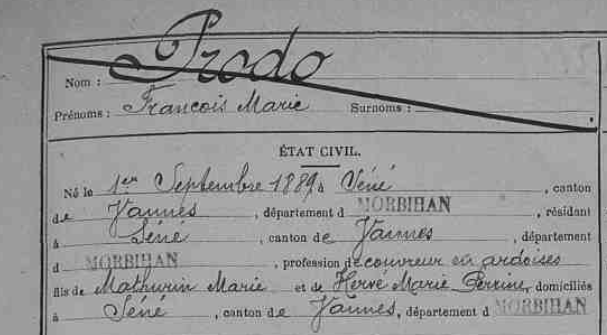 Nom : Prado
Prénoms : François Marie Surnoms :
ÉTAT CIVIL.
Né le 1er Septembre 1889 à Séné , canton
de Vannes , département d MORBIHAN , résidant
à Séné , canton de Vannes , département
d MORBIHAN , profession de couvreur en ardoises
fils de Mathurin Marie et de Hervé Marie Perrine, domiciliés
à Séné , canton de Vannes, département d MORBIHAN